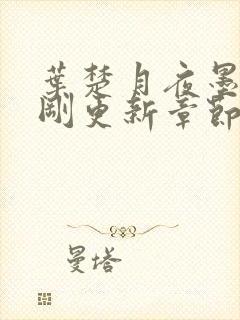 葉楚月夜墨
剛更新章節
曼塔